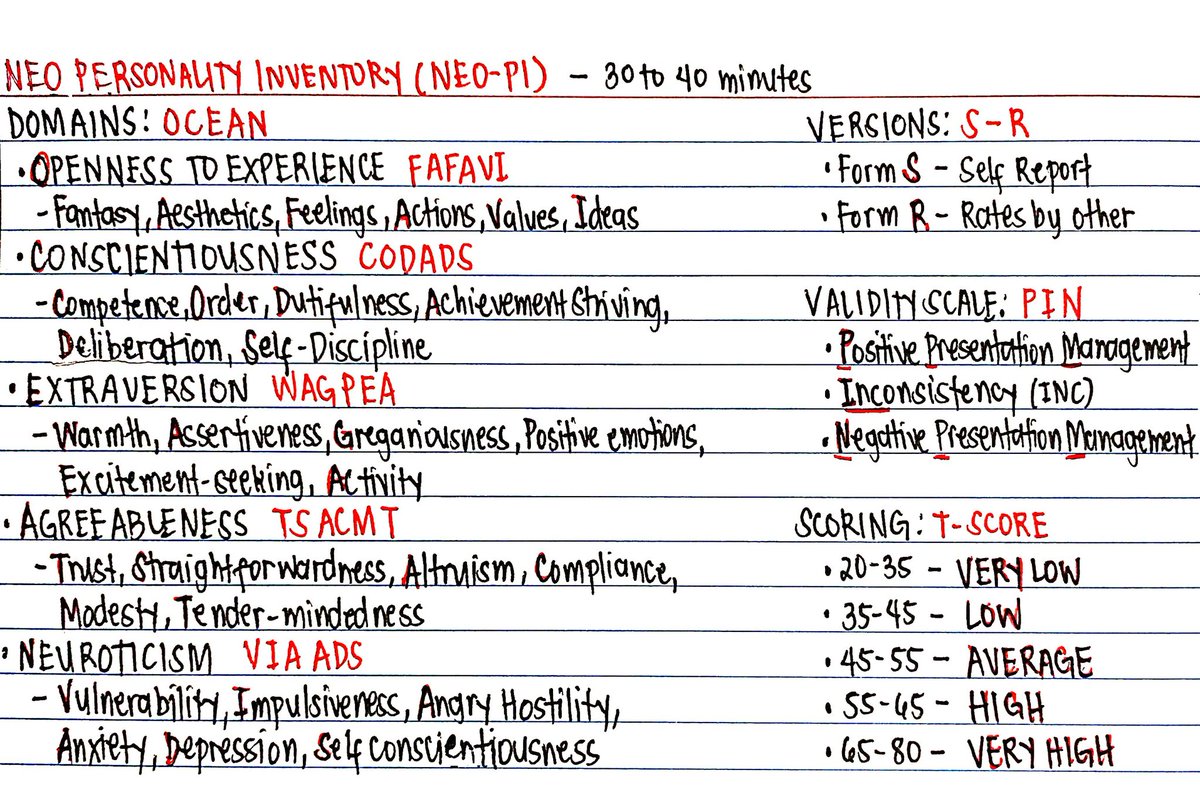 NEO PERSONALITY INVENTORY (NEO-PI) - 30 to 40 minutes
DOMAINS: OCEAN
• OPENNESS TO EXPERIENCE FAFAVI
- Fantasy, Aesthetics, Feelings, Actions, Values, Ideas
• CONSCIENTIOUSNESS CODADS
- Competence, Order, Dutifulness, Achievement Striving,
Deliberation, Self-Discipline
• EXTRAVERSION WAGPEA
- Warmth, Assertiveness, Gregariousness, Positive emotions,
Excitement-seeking, Activity
• AGREEABLENESS TSACMT
- Trust, Straightforwardness, Altruism, Compliance,
Modesty, Tender-mindedness
• NEUROTICISM VIA ADS
- Vulnerability, Impulsiveness, Angry Hostility,
Anxiety, Depression, Self conscientiousness
VERSIONS: S-R
• Form S - Self Report
• Form R - Rates by other
VALIDITY SCALE: PIN
• Positive Presentation Management
• Inconsistency (INC)
• Negative Presentation Management
SCORING: T-SCORE
• 20-35 - VERY LOW
• 35-45 - LOW
• 45-55 - AVERAGE
• 55-65 - HIGH
• 65-80 - VERY HIGH